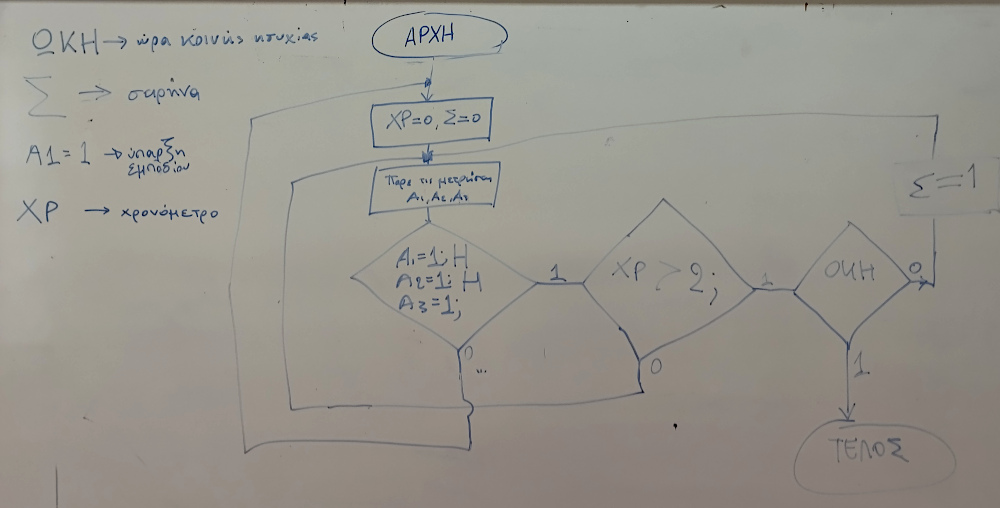 ΩΚΗ → ώρα κοινής ησυχίας
Σ → σειρήνα
Α1 = 1 → ύπαρξη
εμποδίου
ΧΡ → χρονόμετρο
ΑΡΧΗ
ΧΡ=0, Σ=0
Πάρε τις μετρήσεις
Α1, Α2, Α3
Α1=1; Η
Α2=1; Η
Α3=1;
1
0
...
ΧΡ > 2;
1
0
ΩΚΗ
0
1
Σ=1
ΤΕΛΟΣ